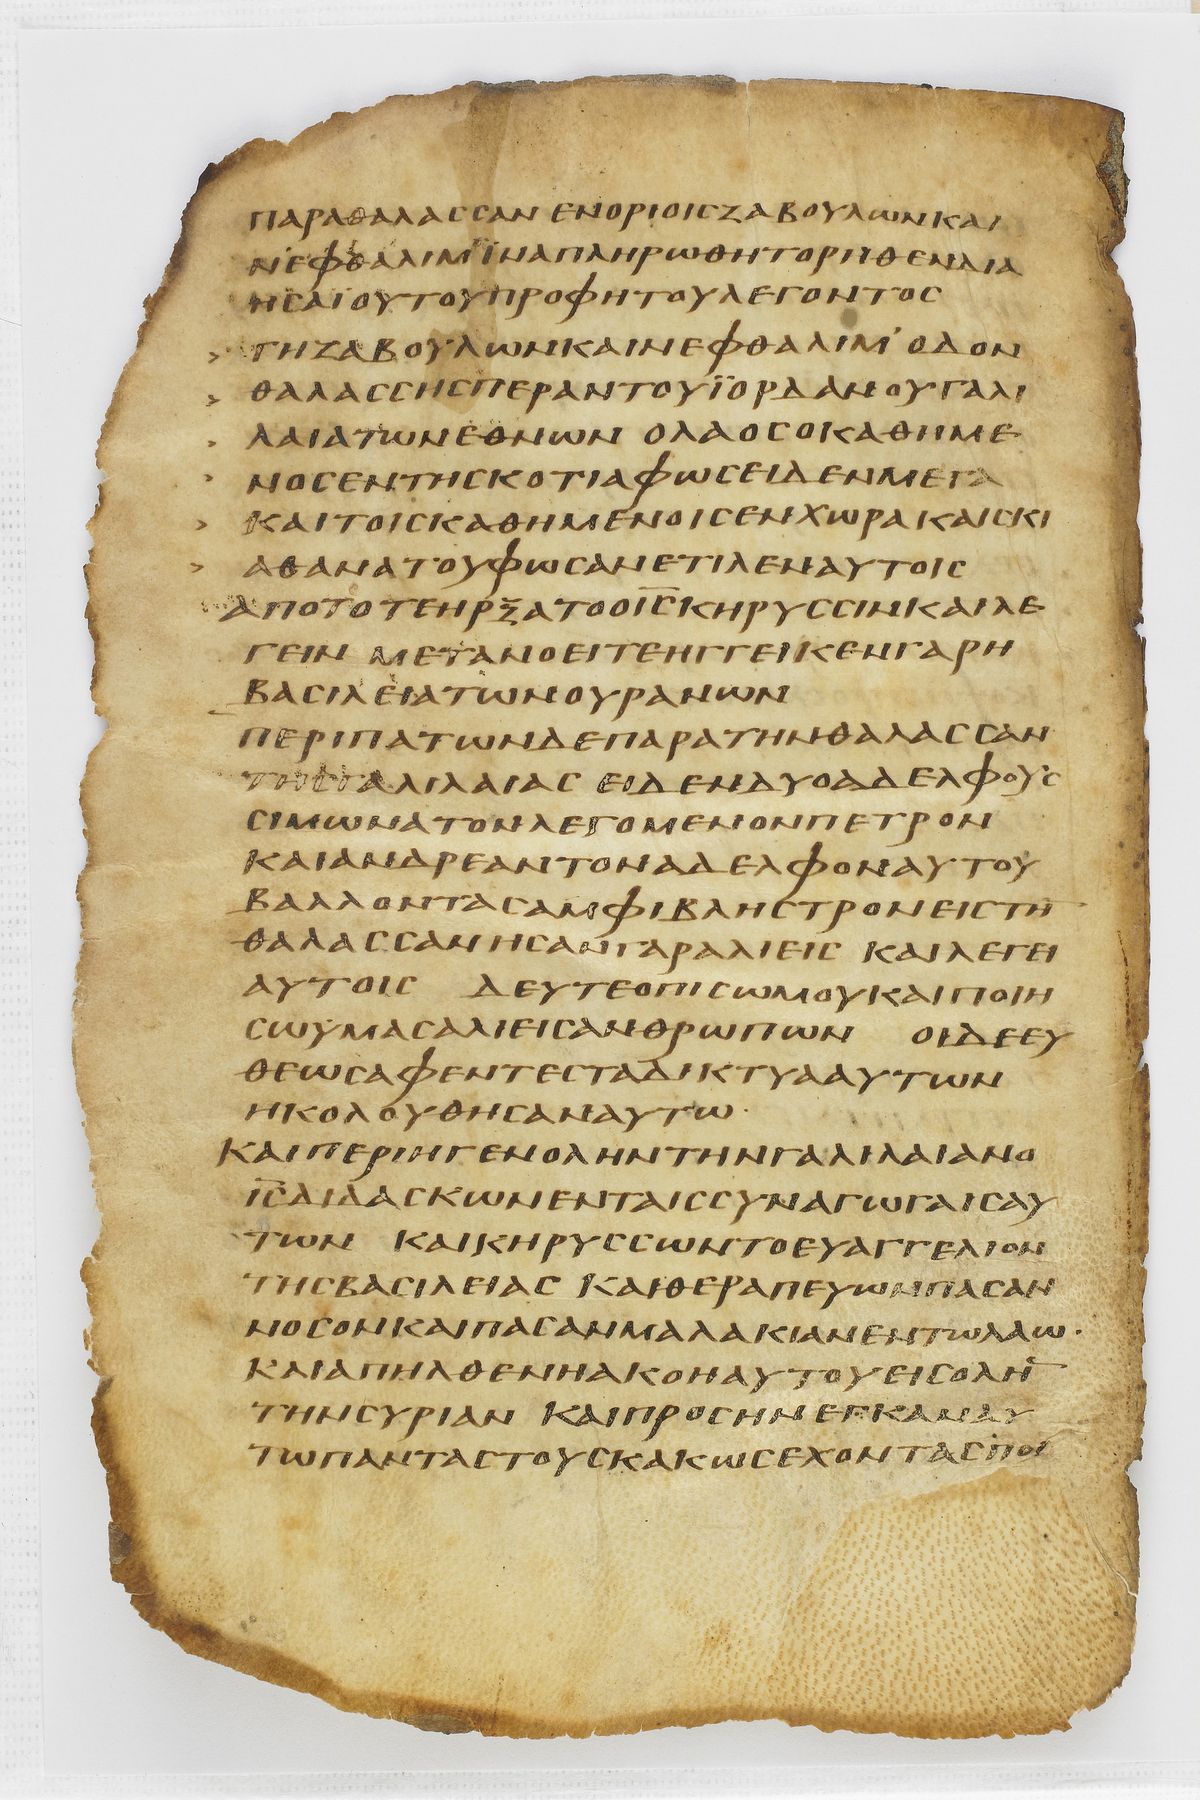 ΠΑΡΑΘΑΛΑССΑΝ ΕΝΟΡΙΟΙСΖΑΒΟΥΛΩΝΚΑΙ
ΝΕΦΘΑΛΙΜ ΪΝΑΠΛΗΡΩΘΗΤΟΡΗΘΕΝΔΙΑ
ΗСΑΙΟΥΤΟΥΠΡΟΦΗΤΟΥΛΕΓΟΝΤΟС
> ΓΗΖΑΒΟΥΛΩΝΚΑΙΝΕΦΘΑΛΙΜ' ΟΔΟΝ
> ΘΑΛΑССΗСΠΕΡΑΝΤΟΥΪΟΡΔΑΝΟΥΓΑΛΙ
> ΛΑΙΑΤΩΝΕΘΝΩΝ ΟΛΑΟСΟΚΑΘΗΜΕ
> ΝΟСΕΝΤΗСΚΟΤΙΑΦΩСΕΙΔΕΝΜΕΓΑ
> ΚΑΙΤΟΙСΚΑΘΗΜΕΝΟΙСΕΝΧΩΡΑΚΑΙСΚΙ
> ΑΘΑΝΑΤΟΥΦΩСΑΝΕΤΙΛΕΝΑΥΤΟΙС
ΑΠΟΤΟΤΕΗΡΞΑΤΟΟΙ̅С̅ΚΗΡΥССΙΝΚΑΙΛΕ
ΓΕΙΝ ΜΕΤΑΝΟΕΙΤΕΗΓΓΕΙΚΕΝΓΑΡΗ
ΒΑСΙΛΕΙΑΤΩΝΟΥΡΑΝΩΝ
ΠΕΡΙΠΑΤΩΝΔΕΠΑΡΑΤΗΝΘΑΛΑССΑΝ
ΤΗСΓΑΛΙΛΑΙΑС ΕΙΔΕΝΔΥΟΑΔΕΛΦΟΥС
СΙΜΩΝΑΤΟΝΛΕΓΟΜΕΝΟΝΠΕΤΡΟΝ
ΚΑΙΑΝΔΡΕΑΝΤΟΝΑΔΕΛΦΟΝΑΥΤΟΥ
ΒΑΛΛΟΝΤΑСΑΜΦΙΒΛΗСΤΡΟΝΕΙСΤΗ̅
ΘΑΛΑССΑΝΗСΑΝΓΑΡΑΛΙΕΙС ΚΑΙΛΕΓΕΙ
ΑΥΤΟΙС ΔΕΥΤΕΟΠΙСΩΜΟΥΚΑΙΠΟΙΗ
СΩΥΜΑСΑΛΙΕΙСΑΝΘΡΩΠΩΝ ΟΙΔΕΕΥ
ΘΕΩСΑΦΕΝΤΕСΤΑΔΙΚΤΥΑΑΥΤΩΝ
ΗΚΟΛΟΥΘΗСΑΝΑΥΤΩ·
ΚΑΙΠΕΡΙΗΓΕΝΟΛΗΝΤΗΝΓΑΛΙΛΑΙΑΝΟ
Ι̅С̅ΔΙΔΑСΚΩΝΕΝΤΑΙССΥΝΑΓΩΓΑΙСΑΥ
ΤΩΝ ΚΑΙΚΗΡΥССΩΝΤΟΕΥΑΓΓΕΛΙΟΝ
ΤΗСΒΑСΙΛΕΙΑС ΚΑΙΘΕΡΑΠΕΥΩΝΠΑСΑΝ
ΝΟСΟΝΚΑΙΠΑСΑΝΜΑΛΑΚΙΑΝΕΝΤΩΛΑΩ·
ΚΑΙΑΠΗΛΘΕΝΗΑΚΟΗΑΥΤΟΥΕΙСΟΛΗ̅
ΤΗΝСΥΡΙΑΝ ΚΑΙΠΡΟСΗΝΕΓΚΑΝΑΥ
ΤΩΠΑΝΤΑСΤΟΥСΚΑΚΩСΕΧΟΝΤΑСΠΟΙ